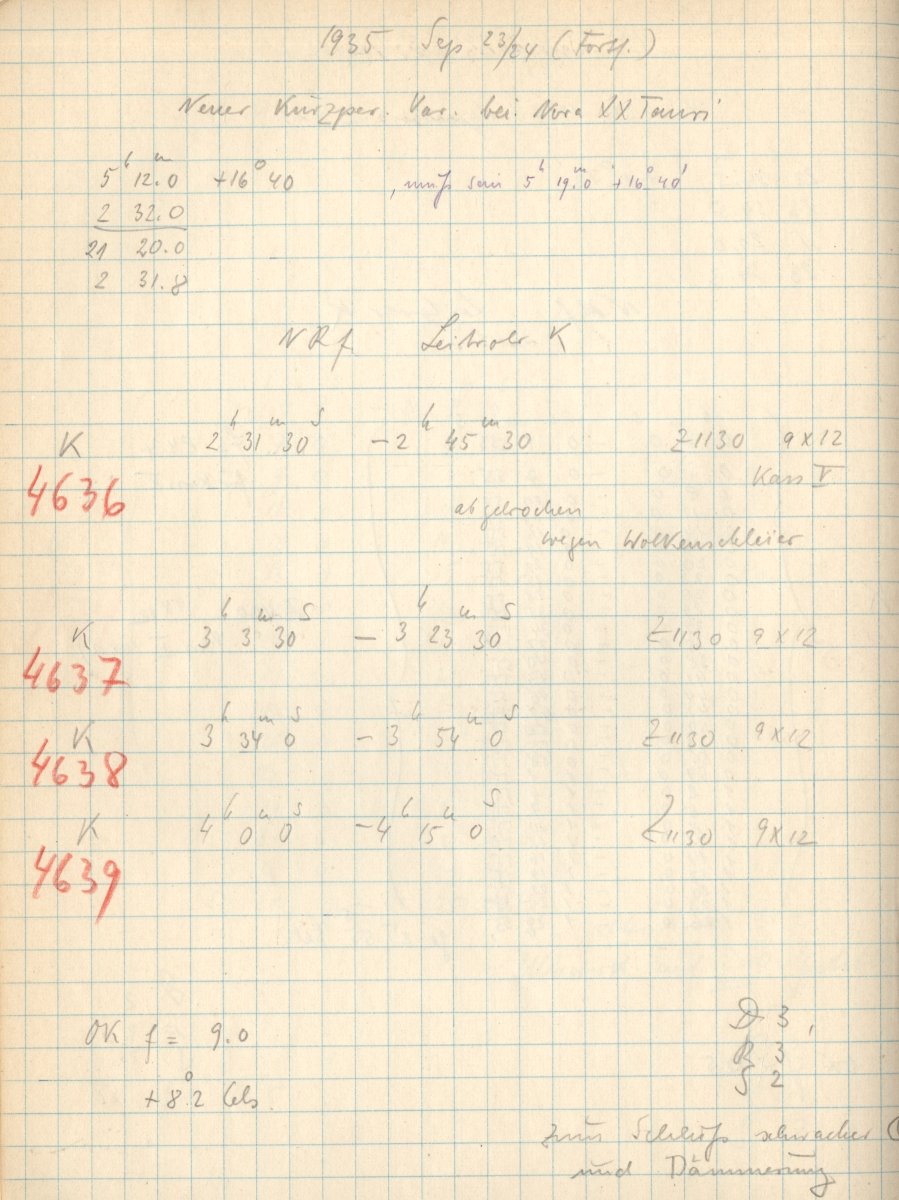 1935 Sep 23/24 (Forts.)
Neuer Kurzper. Var. bei Nova XX Tauri
5ʰ 12.ᵐ0 +16° 40 , muß sein 5ʰ 19.ᵐ0 +16° 40'
2 32.0
21 20.0
2 31.8
NRf Leitrohr K
K 2ʰ 31ᵐ 30ˢ – 2ʰ 45ᵐ 30 Z1130 9x12
4636 Kass V
abgebrochen
wegen Wolkenschleier
K 3ʰ 3ᵐ 30ˢ – 3ʰ 23ᵐ 30ˢ Z1130 9x12
4637
K 3ʰ 34ᵐ 0ˢ – 3ʰ 54ᵐ 0ˢ Z1130 9x12
4638
K 4ʰ 0ᵐ 0ˢ – 4ʰ 15ᵐ 0ˢ Z1130 9x12
4639
OK f = 9.0
+8.°2 Cels.
D 3,
R 3
S 2
zum Schluß schwacher
und Dämmerung